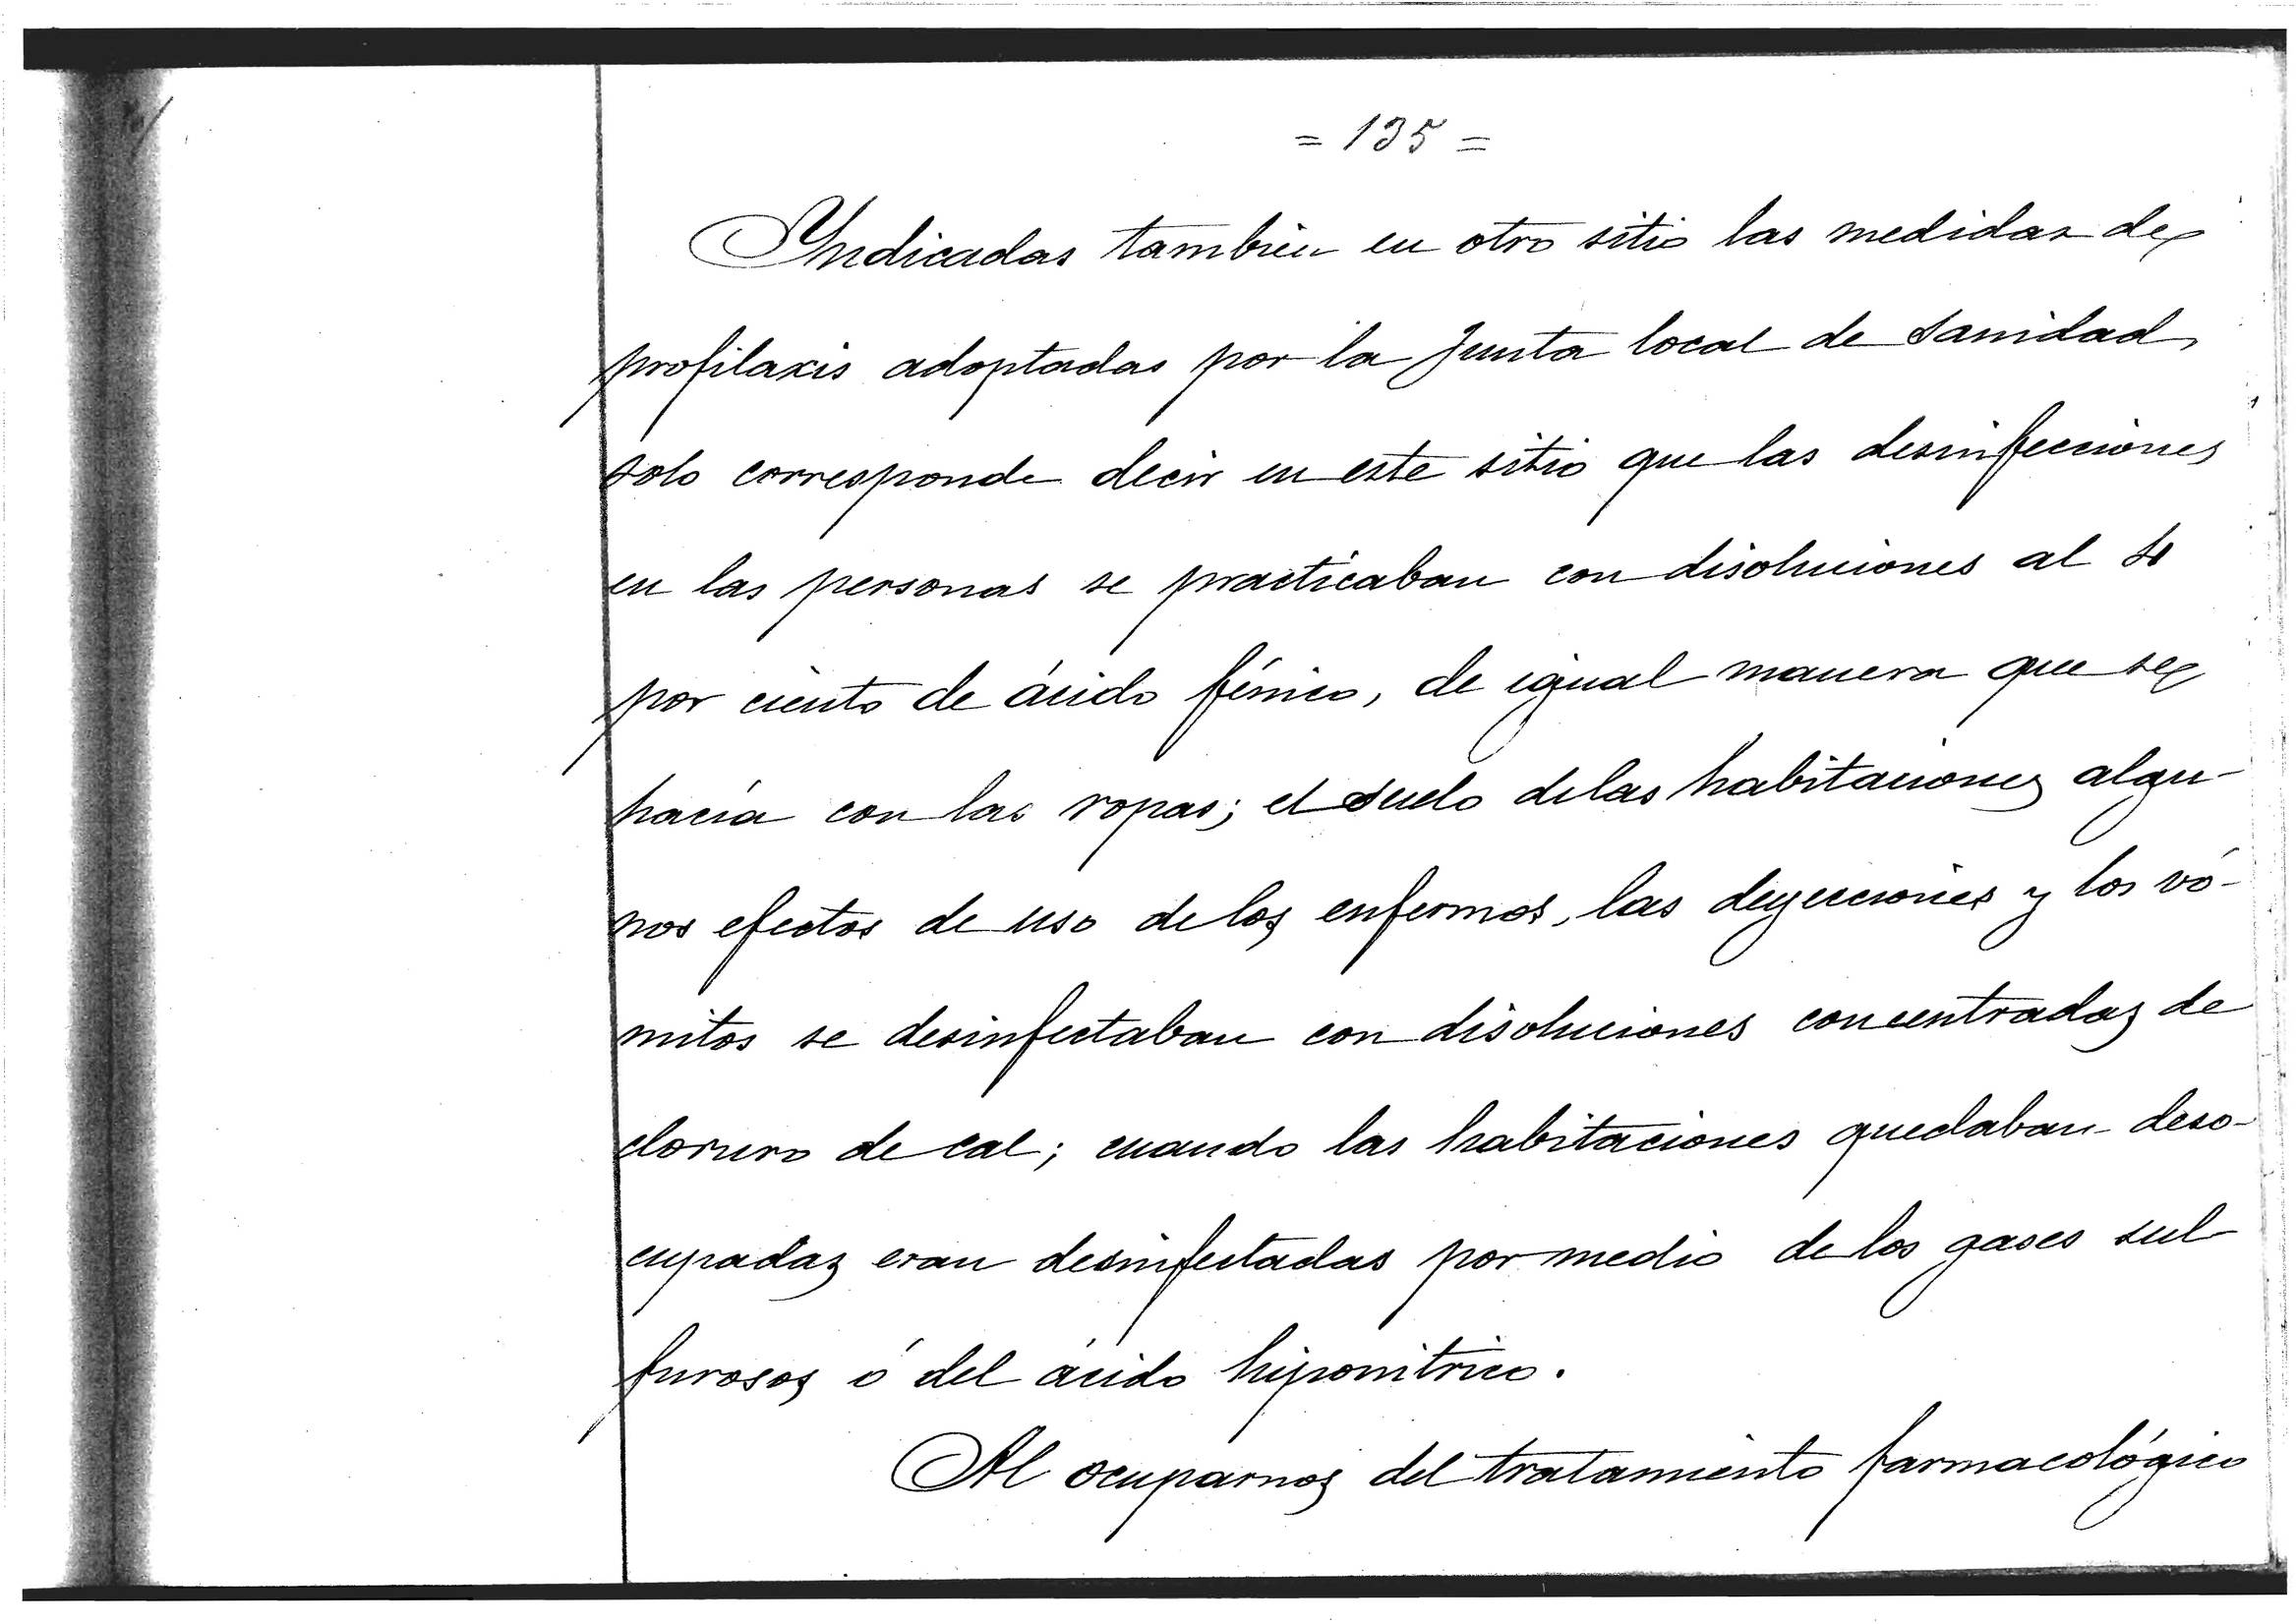 = 135 =
Yndicadas tambien en otro sitio las medidas de
profilaxis adoptadas por la Junta local de Sanidad,
solo corresponde decir en este sitio que las desinfecciones
en las personas se practicaban con disoluciones al
por ciento de ácido fénico, de igual manera que se
hacía con las ropas; el suelo de las habitaciones algu-
nos efectos de uso de los enfermos, las deyecciones y los vó-
mitos se desinfectaban con disoluciones concentradas de
cloruro de cal; cuando las habitaciones quedaban deso-
cupadas eran desinfectadas por medio de los gases sul
furosos ó del ácido hiponitrico.
Al ocuparnos del tratamiento farmacológico